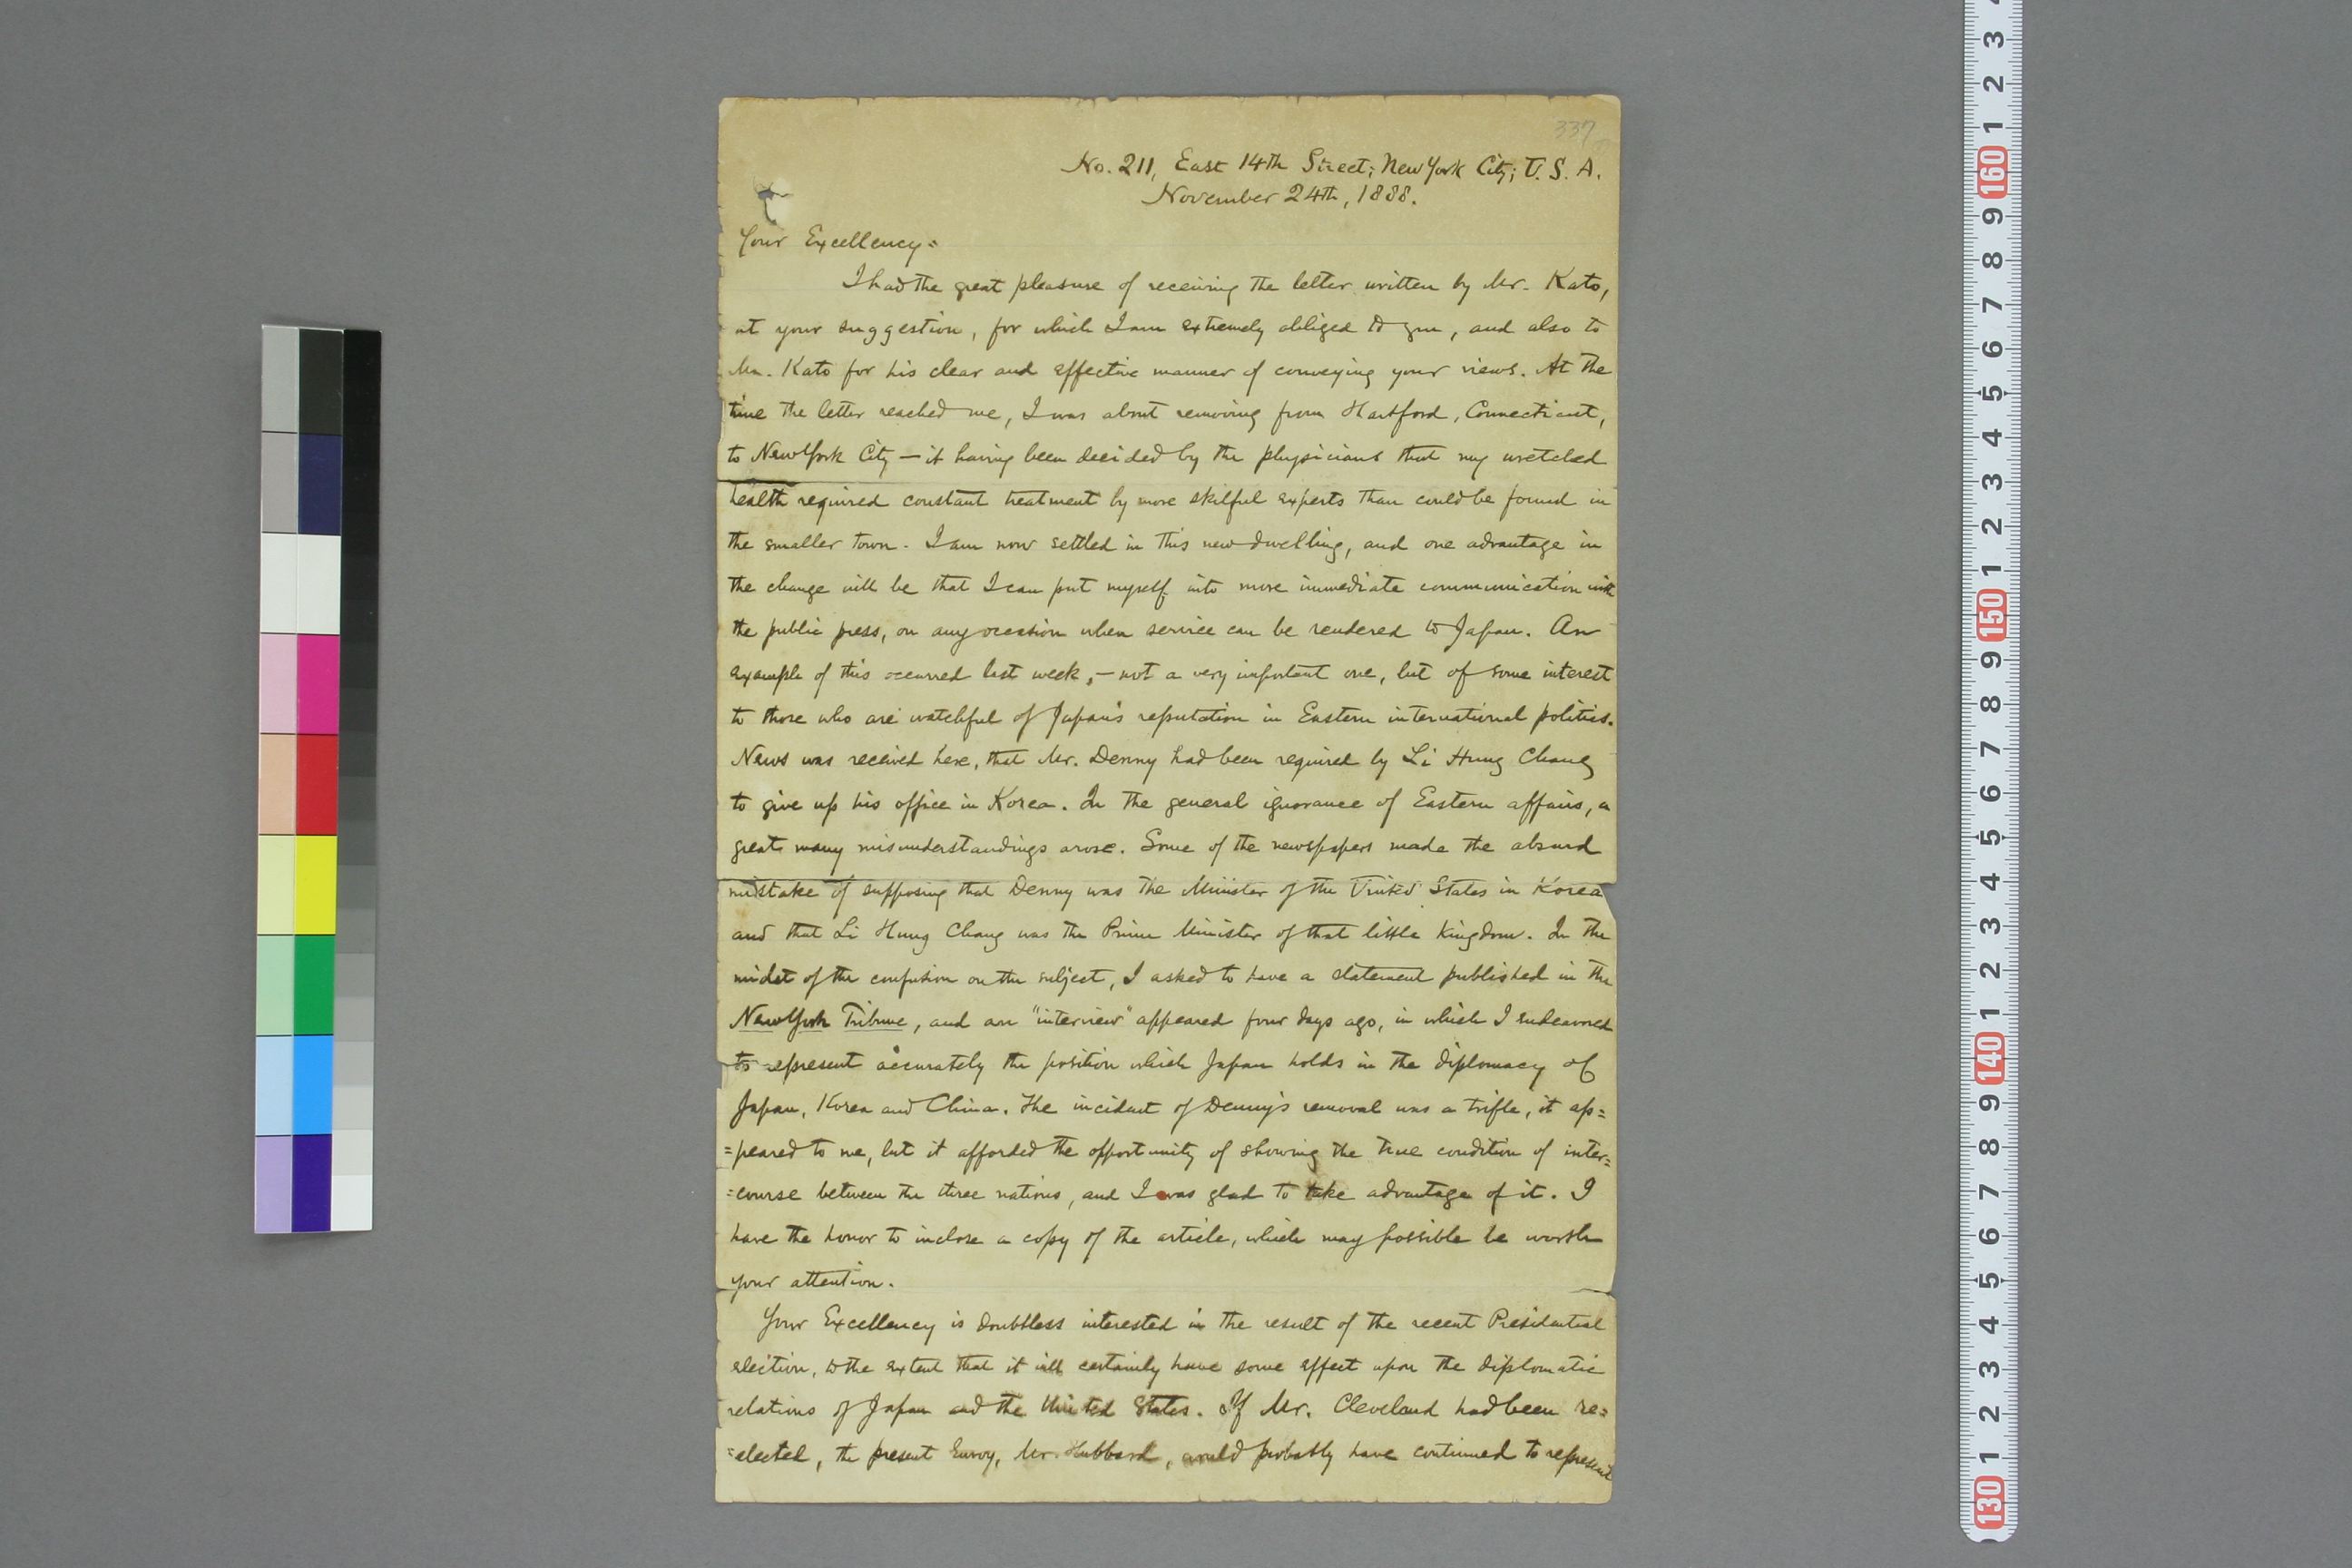 337
No. 211, East 14th Street; New York City; U. S. A.
November 24th, 1888.
Your Excellency=
I had the great pleasure of receiving the letter written by Mr. Kato,
at your suggestion, for which I am extremely obliged to you, and also to
Mr. Kato for his clear and effective manner of conveying your views. At the
time the letter reached me, I was about removing from Hartford, Connecticut,
to New York City — it having been decided by the physicians that my wretched
health required constant treatment by more skilful experts than could be found in
the smaller town. I am now settled in this new dwelling, and one advantage in
the change will be that I can put myself into more immediate communication with
the public press, on any occasion when service can be rendered to Japan. An
example of this occurred last week, — not a very important one, but of some interest
to those who are watchful of Japan's reputation in Eastern international politics.
News was received here, that Mr. Denny had been required by Li Hung Chang
to give up his office in Korea. In the general ignorance of Eastern affairs, a
great many misunderstandings arose. Some of the newspapers made the absurd
mistake of supposing that Denny was the Minister of the United States in Korea
and that Li Hung Chang was the Prime Minister of that little Kingdom. In the
midst of the confusion on the subject, I asked to have a statement published in the
New York Tribune, and an "interview" appeared four days ago, in which I endeavored
to represent accurately the position which Japan holds in the diplomacy of
Japan, Korea and China. The incident of Denny's removal was a trifle, it ap=
=peared to me, but it afforded the opportunity of showing the true condition of inter=
=course between the three nations, and I was glad to take advantage of it. I
have the honor to inclose a copy of the article, which may possible be worth
your attention.
Your Excellency is doubtless interested in the result of the recent Presidential
election, to the extent that it will certainly have some effect upon the diplomatic
relations of Japan and the United States. If Mr. Cleveland had been re=
=elected, the present Envoy, Mr. Hubbard, would probably have continued to represent
3
2
1
160
9
8
7
6
5
4
3
2
1
150
9
8
7
6
5
4
3
2
1
140
9
8
7
6
5
4
3
2
1
130